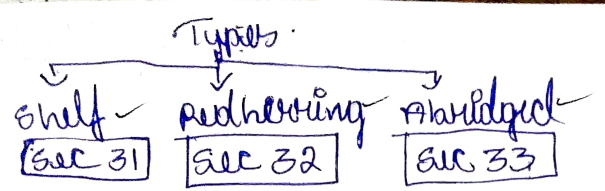 Types.
Shelf Redherring Abridged
Sec 31 Sec 32 Sec 33